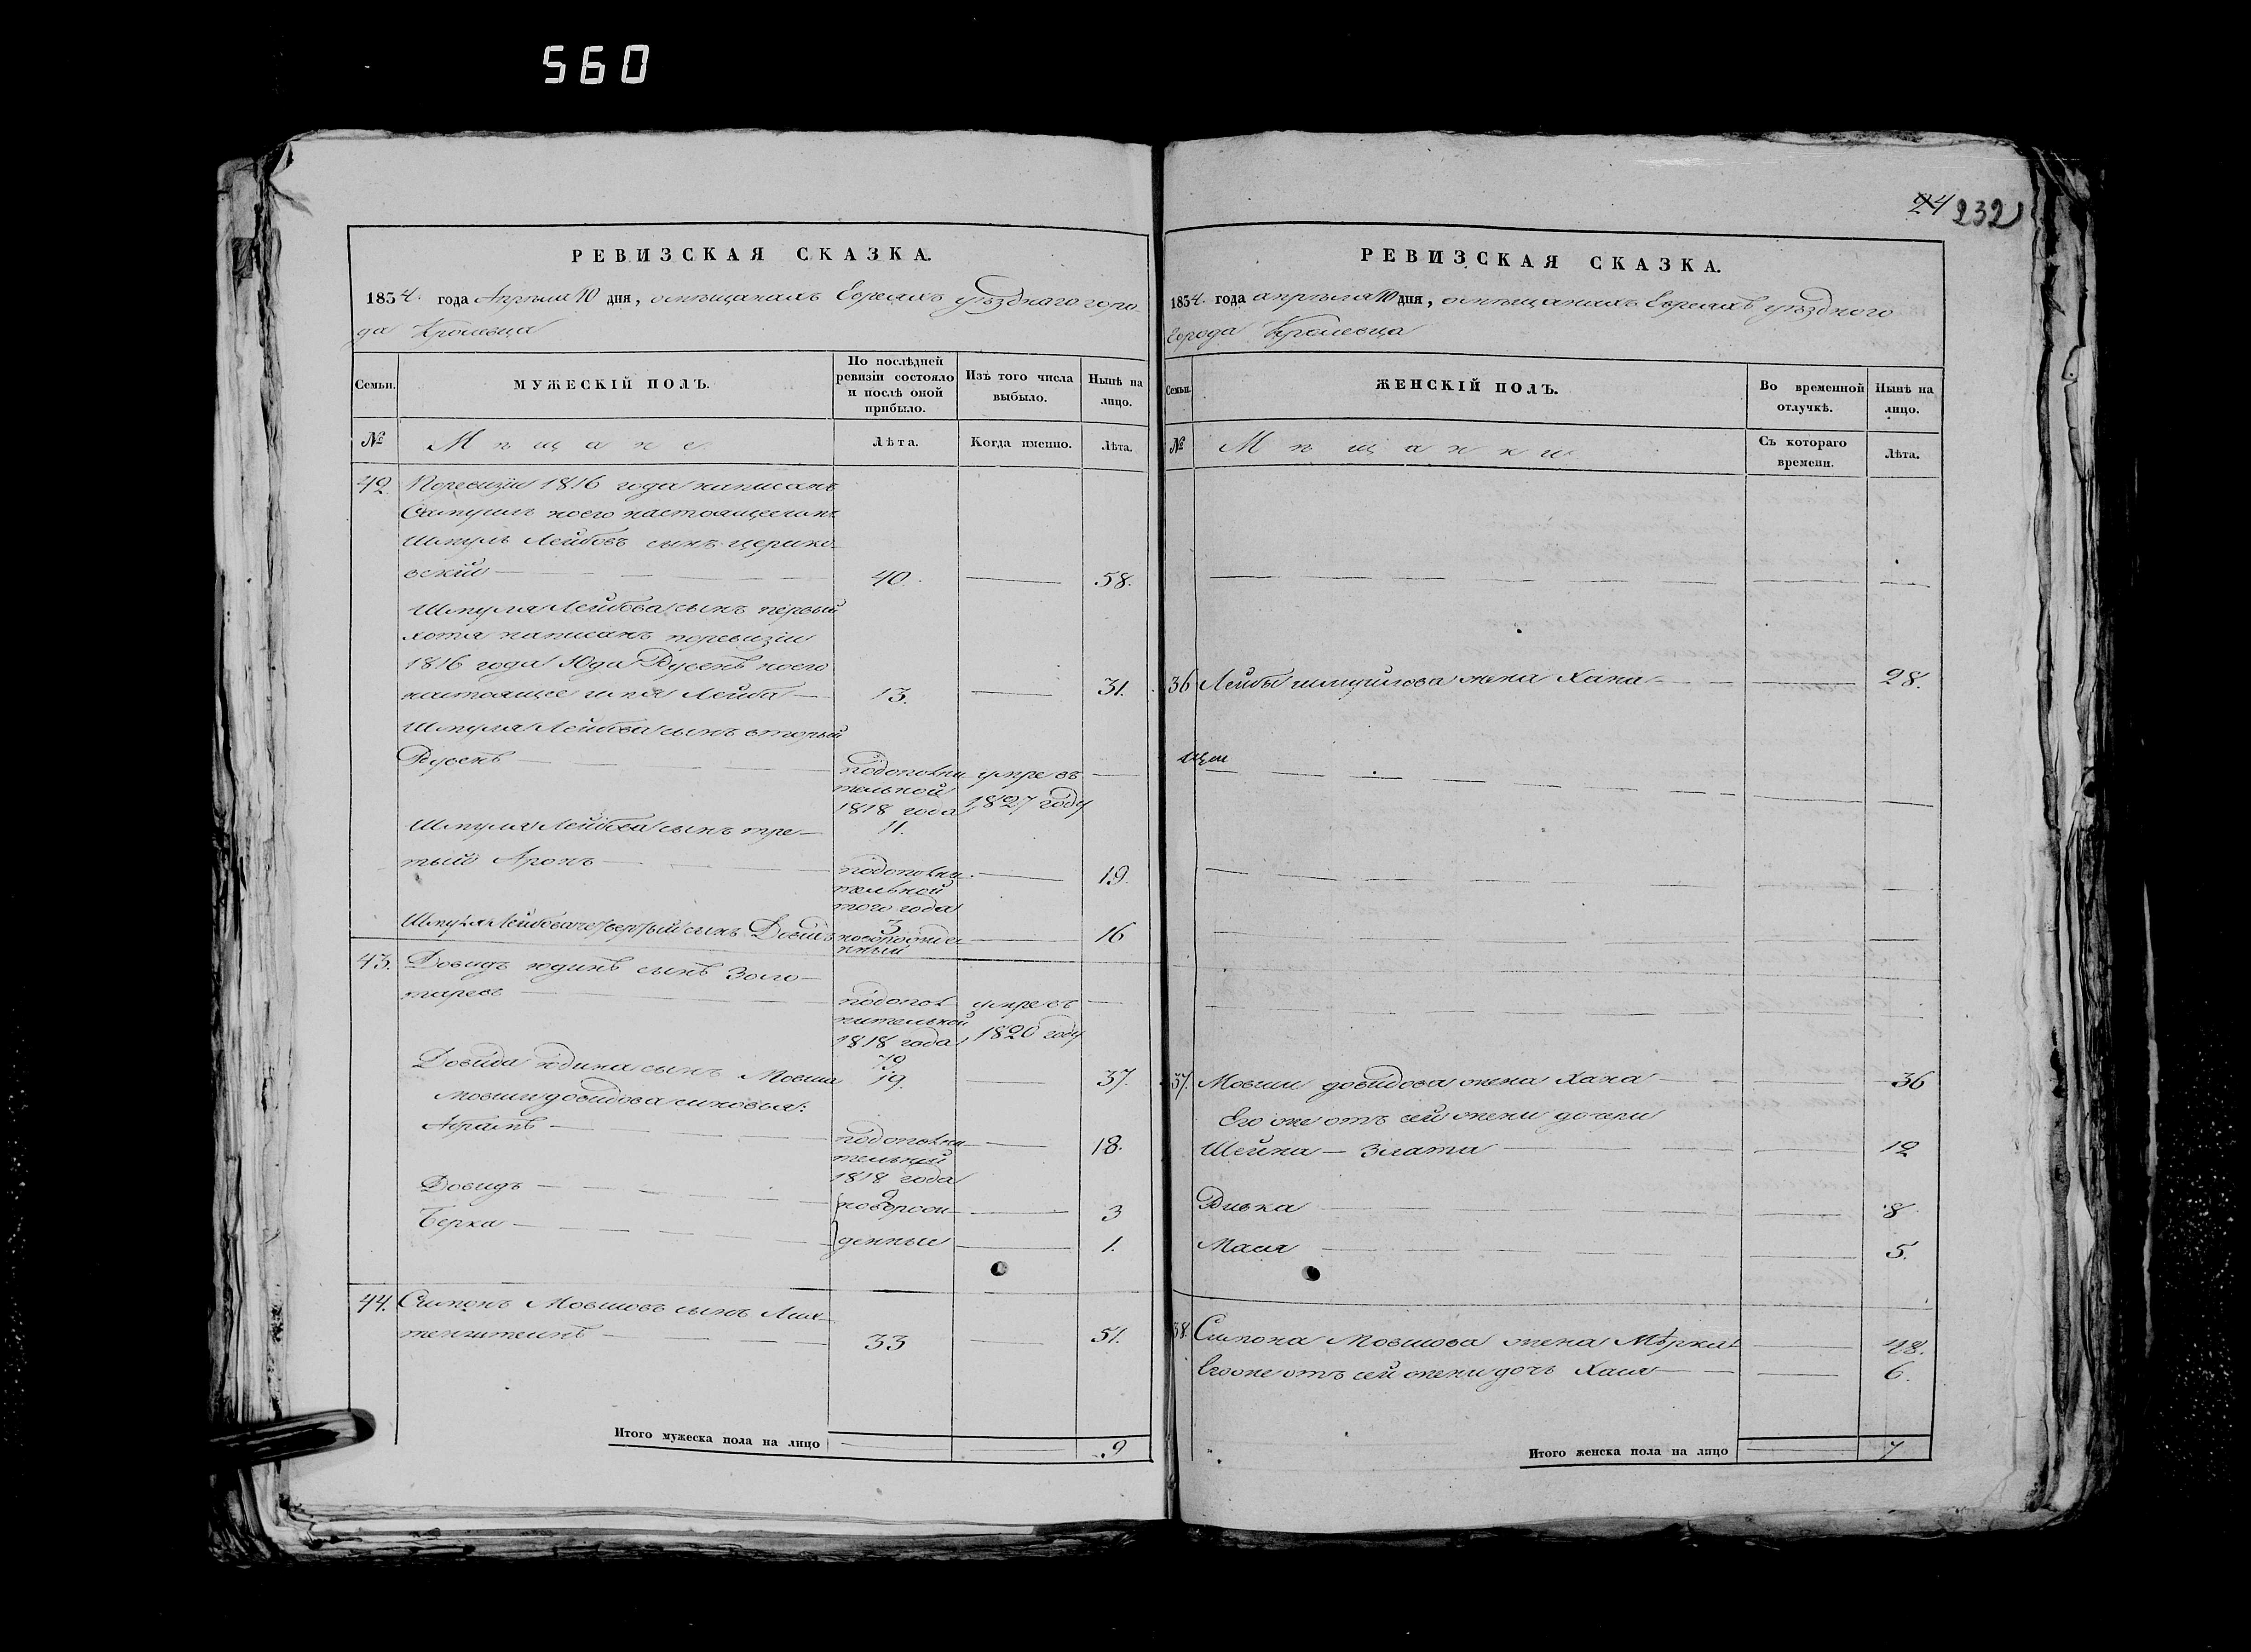 560
24 232
РЕВИЗСКАЯ СКАЗКА.
1834. года Апрѣля 10 дня, омѣщанахъ Евреяхъ уѣзднаго горо
да Кролевца
Семьи.
МУЖЕСКІЙ ПОЛЪ.
По послѣдней ревизіи состояло и послѣ оной прибыло.
Изъ того числа выбыло.
Нынѣ на лицо.
№
Мѣщане
Лѣта.
Когда именно.
Лѣта.
42 Поревизіи 1816 года написанъ
коего настоящее имя
Шмуль Лейбовъ сынъ церико
вскій 40. 58.
Шмуля Лейбова сынъ первый
хотя написанъ поревизіи
1816 года Юда Рувенъ коего
настоящее имя Лейба 13. 31.
Шмуля Лейбова сынъ вторый
Рувенъ подополни умре въ
тельной
1818 года 1827 году
11.
Шмуля Лейбова сынъ тре
тый Аронъ подополни 19.
тельной
того года
3
Шмуля Лейбова четвертый сынъ Довидъ новорожде 16
нный
43. Довидъ юдинъ сынъ Золо
таревъ подопол умре въ
нительной
1818 года 1820 году
79
Довида юдина сынъ Мовша 19. 37.
Мовши довидова сыновья:
Абрамъ подополни 18.
тельной
1818 года
2
Довидъ новорож 3
Берка денные 1.
44. Симонъ Мовшовъ сынъ Лих
тенштеинъ 33 51.
Итого мужеска пола на лицо 9
РЕВИЗСКАЯ СКАЗКА.
1834. года апрѣля 10 дня, омѣщанахъ Евреяхъ уѣздного
города Кролевца
Семьи.
ЖЕНСКІЙ ПОЛЪ.
Во временной отлучкѣ.
Нынѣ на лицо.
№
Мѣщанки
Съ котораго времени.
Лѣта.
36 Лейбы шмуилова жена Хана 28.
37. Мовши довидова жена Хана 36
Его же отъ сей жены дочери
Шейна — Злата 12
Ривка 8
Мася 5.
38. Симона Мовшова жена Мѣрка 48.
Егоже отъ сей жены дочь Хася 6.
Итого женска пола на лицо 7